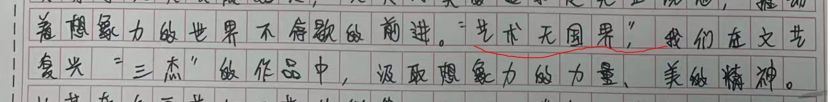 着想象力的世界不停歇的前进。“艺术无国界”，我们在文艺
复兴“三杰”的作品中，汲取想象力的力量、美的精神。